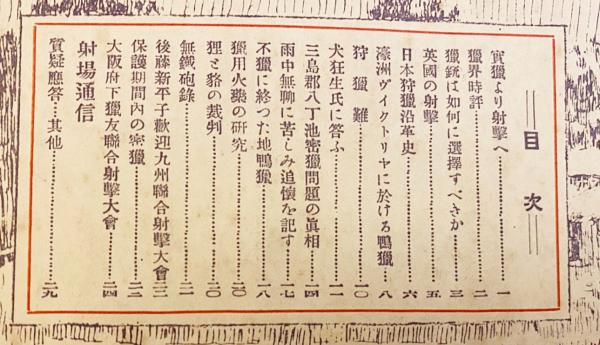 目次
實獵より射擊へ…………一
獵界時評…………二
獵銃は如何に選擇すべきか…………三
英國の射擊…………五
日本狩獵沿革史…………六
濠洲ヴイクトリヤに於ける鴨獵…………八
狩獵難…………一〇
犬狂生氏に答ふ…………一一
三島郡八丁池密獵問題の眞相…………一四
雨中無聊に苦しみ追懷を記す…………一七
不獵に終つた地鴨獵…………一八
獵用火藥の硏究…………二〇
狸と貉の裁判…………二〇
無鐵砲錄…………二一
後藤新平子歡迎九州聯合射擊大會…………二二
保護期間內の密獵…………二三
大阪府下獵友聯合射擊大會…………二四
射場通信
質疑應答…其他…………二九